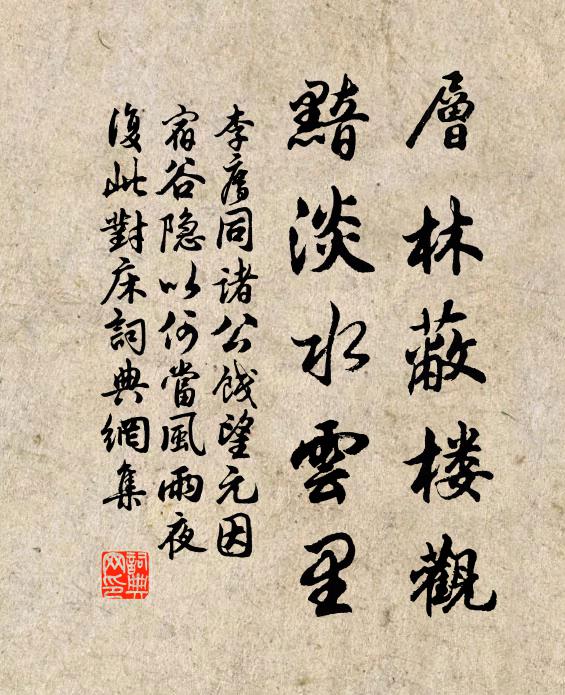 層林蔽楼觀
黯淡水雲里
李廌同諸公餞望元因
宿谷隐以何當風雨夜
復此對床詞典網集
詞典
网印